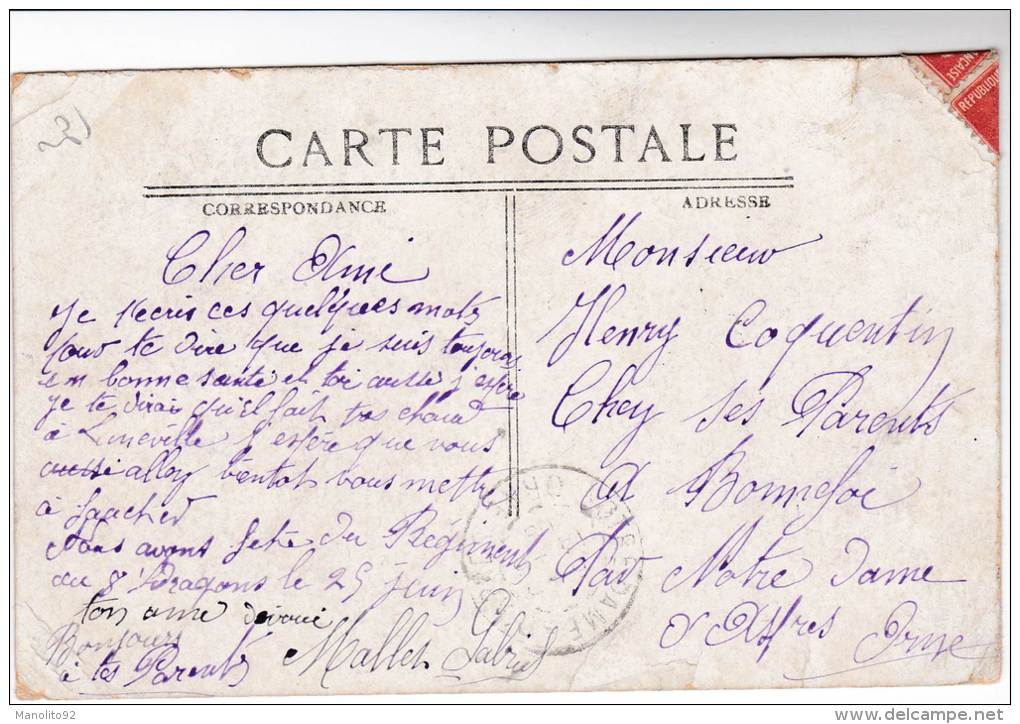 CARTE POSTALE
CORRESPONDANCE
Cher Ami
Je t'ecris ces quelques mots
pour te dire que je suis toujours
en bonne santé et toi aussi j'espère
Je te dirais qu'il fait tres chaud
à Luneville j'espère que vous
aussi allez bientot vous mettre
à
Nous avons fete du Régiment
au 8 Dragons le 25 juin
ton ami devoué
Bonjours
à tes Parents
Mallet Gabriel
ADRESSE
Monsieur
Henry Coquentin
Chez ses Parents
à Bonnefoi
Par Notre Dame
d'Aspres Orne
RÉPUBLIQUE
Manolito92
delcampe.net